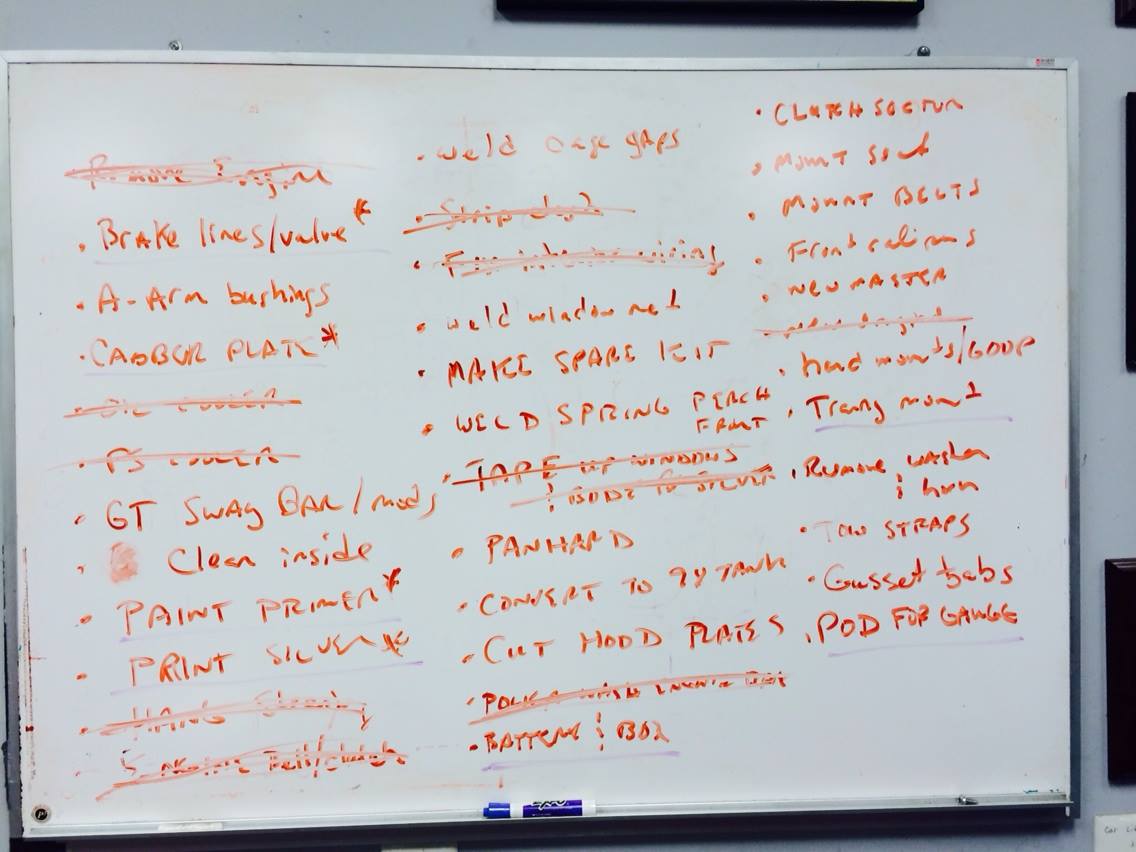 Remove Engine
• Brake lines/valve*
• A-Arm bushings
• CAMBER PLATE*
• OIL COOLER
• PS COOLER
• GT SWAY BAR/mods
• Clean inside
• PAINT PRIMER*
• PAINT SILVER*
• HANG
• weld cage gaps
• Strip
• wiring
• weld window net
• MAKE SPARE KIT
• WELD SPRING PERCH
FRONT
• TAPE UP WINDOWS
• PANHARD
• CONVERT TO 94 TANK
• CUT HOOD PLATES
• BATTERY & BOX
• CLUTCH
• MOUNT Seat
• MOUNT BELTS
• Front calipers
• NEW MASTER
• head mounts/
• Trany mount
• Remove washer
& horn
• TOW STRAPS
• Gusset tabs
• POD FOR GAUGE
EXPO